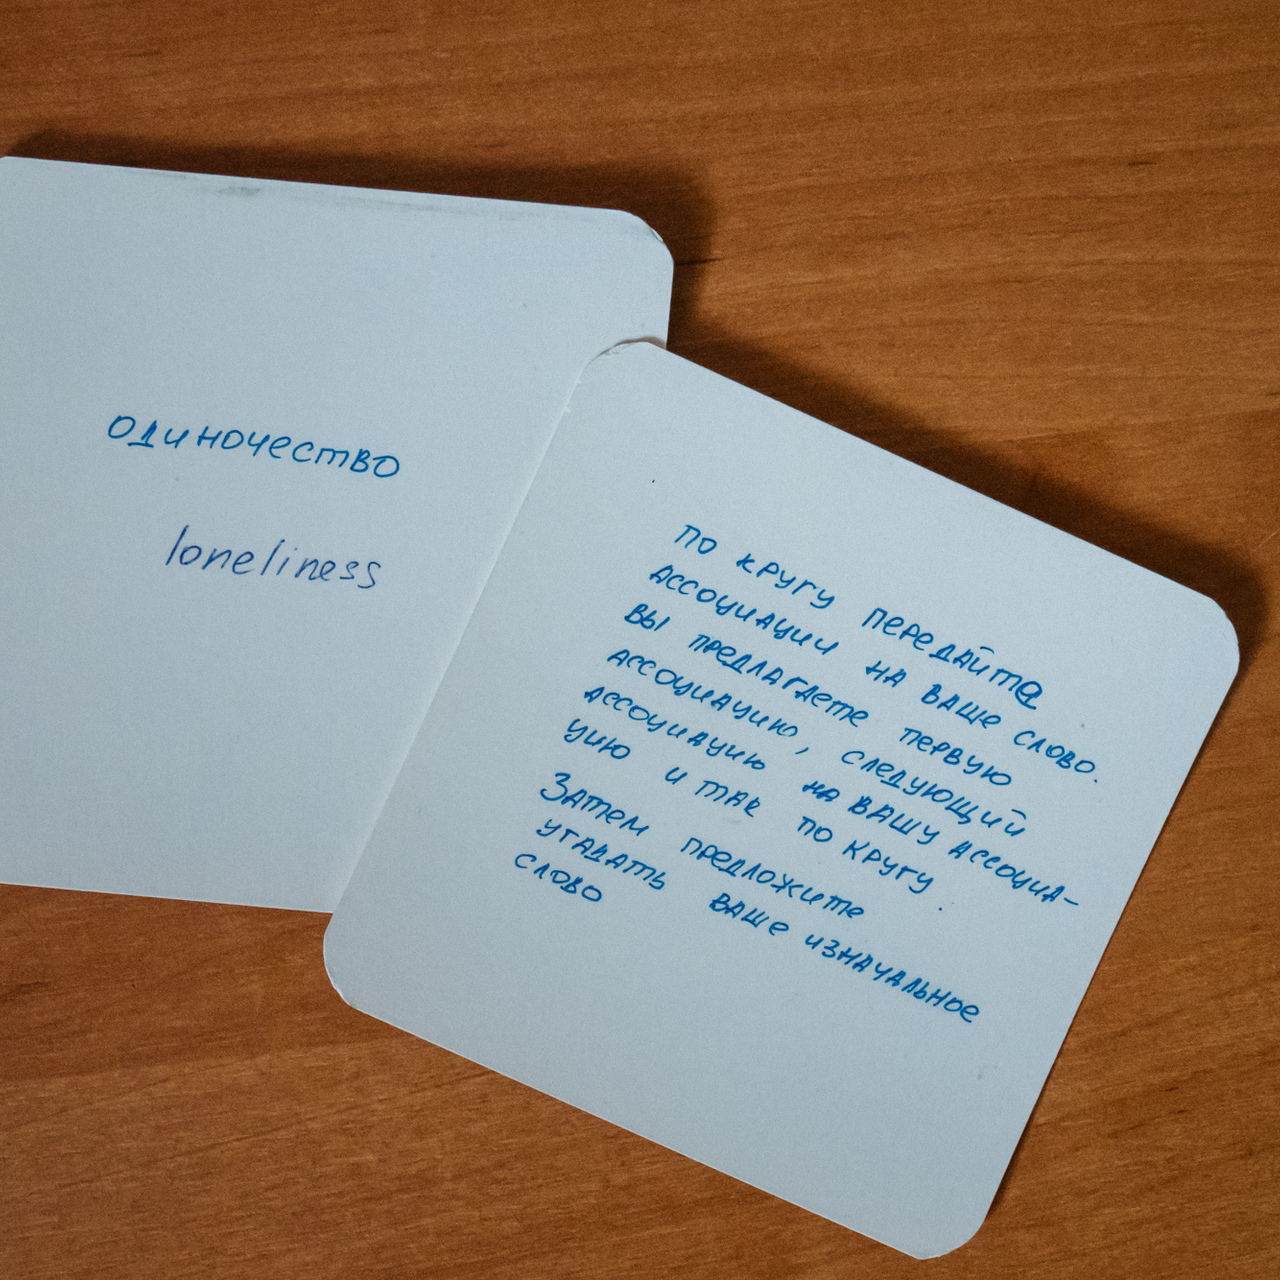 одиночество
loneliness
По кругу передайте
ассоциации на ваше слово.
Вы предлагаете первую
ассоциацию, следующий
ассоциацию на вашу ассоциа-
цию и так по кругу.
Затем предложите
угадать ваше изначальное
слово